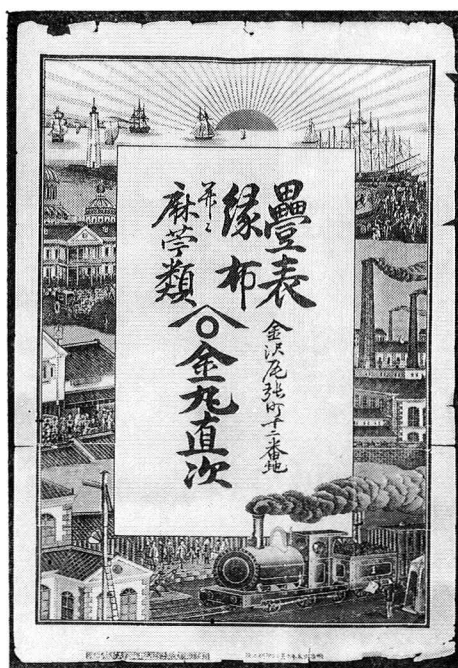 疊表
縁布
并ニ
麻苧類
金沢尾張町十二番地
金丸直次